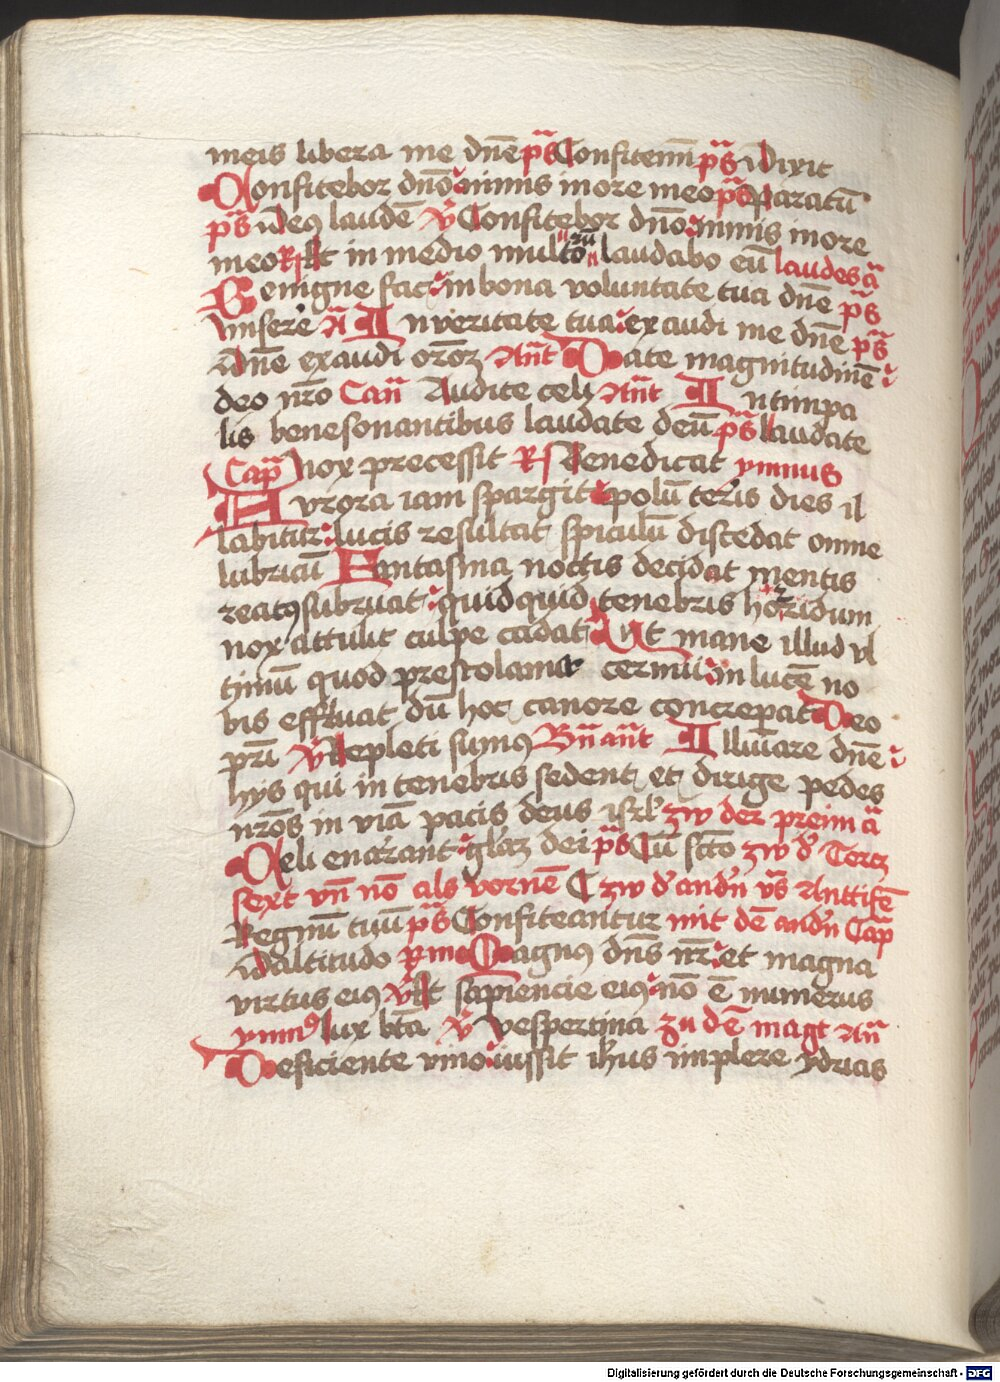 meis libera me dn̄e ps̄ Confitemī ps̄ ii Dixit
Confitebor dn̄o nimis in ore meo ps̄ Paratū
ps̄ ii Deꝰ laudē v̄ Confitebor dn̄o nimis in ore
meo R Et in medio multorū laudabo eū laudes ā
Benigne fac in bona voluntate tua dn̄e ps̄
Miserē ā In veritate tua exaudi me dn̄e ps̄
Dn̄e exaudi oroꝫ Ant̄ Date magnitudinē
deo nr̄o Can̄ Audite celi Ant̄ In timpa
lis benesonantibus laudate deū ps̄ laudate
Cap̄ Nox precessit R Benedicat ymnus
Aurora iam spargit polū terris dies il
labitur lucis resultat spiculū discedat omne
lubricū Fantasma noctis decidat mentis
reatꝰ subruat quid quid tenebris horridum
nox attulit culpe cadat Vt mane illud vl
timū quod prestolamur cernui in lucē no
bis effluat dū hoc canore concrepat Deo
pr̄i v̄ Repleti sumꝰ Bn̄ ant̄ Illuīare dn̄e
hys qui in tenebris sedent et dirige pedes
nr̄os in viā pacis deus isrl' zw der preim ā
Celi enarrant gl'aꝫ dei ps̄ Cū sctō zw d' Tercz
sext vn̄ nō als vornē C zw d' and'n v̄s Anttifē
Regnū tuū ps̄ Confiteantur mit dē and'n Cap̄
O altitudo prm Magnꝰ dn̄s nr̄ et magna
virtus eiꝰ v̄ Et sapiencie eiꝰ nō ē numerus
ymnꝰ lux bt̄a v̄ Vespertina zu dē magt an̄
Deficiente vino iussit ih'us implere ydrias
Digitalisierung gefördert durch die Deutsche Forschungsgemeinschaft - DFG